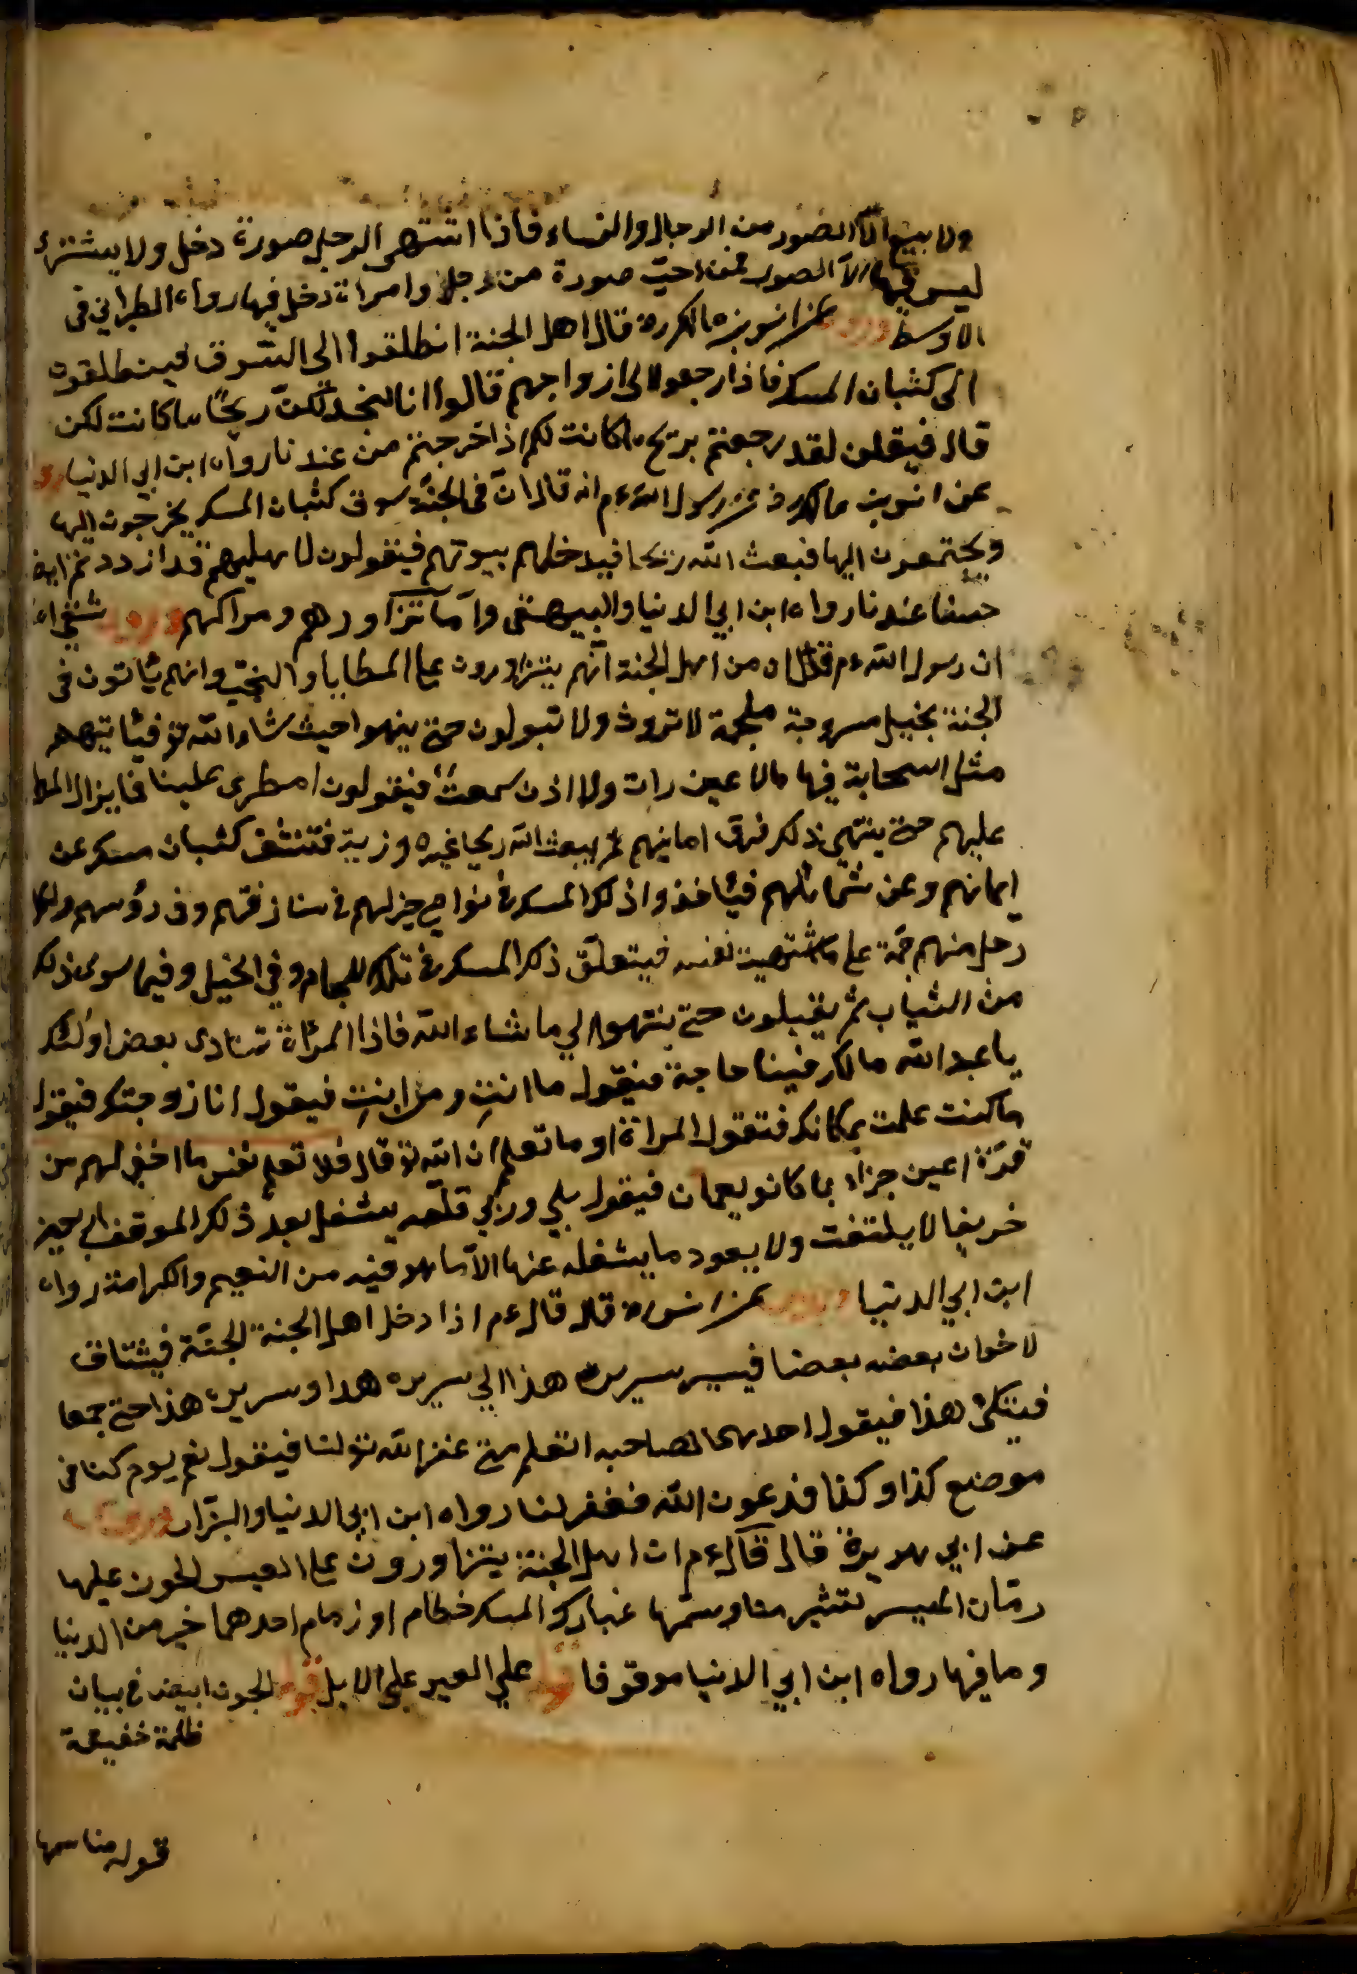 ولا بيع الا الصور من الرجال والنساء فاذا اشتهى الرجل صورة دخل ولا يشترى
ليس فيها الا الصور فمن احب صورة من رجل وامراة دخل فيها رواه الطبراني في
الاوسط وروى عن انس بن مالك رض قال اهل الجنة انطلقوا الى السوق فينطلقون
الى كثبان المسك فاذا رجعوا الى ازواجهم قالوا انا لنجد لكن ريحا ما كانت لكن
قال فيقلن لقد رجعتم بريح ما كانت لكم اذ اخرجتم من عندنا رواه ابن ابي الدنيا
عن انس بن مالك رسول الله ءم انه قال ان في الجنة سوق كثبان المسك يخرجون اليها
ويجتمعون اليها فبعث الله ريحا فيدخلهم بيوتهم فيقولون لاهليهم قد ازددتم
حسنا عندنا رواه ابن ابي الدنيا والبيهقى واما تزاورهم ومراكبهم وروى شفي
ان رسول الله ءم قال ان من اهل الجنة انهم يتزاورون على المطايا والنجب وانهم يأتون فى
الجنة بخيل مسرجة ملجمة لا تروث ولا تبولون حتى ينهوا حيث شاء الله تع فيأتيهم
مثل السحابة فيها مالا عين رات ولا اذن سمعت فيقولون امطرى علينا فما يزال المط
عليهم حتى ينتهى ذلك فوق امانيهم ثم يبعث الله ريحا غير موزية فتنسف كثبان مسك عن
ايمانهم وعن شمائلهم فيأخذوا ذلك المسك في نواصي خيولهم في مفارقهم وفي رؤسهم ولكل
رجل منهم جمة على ما اشتهيت نفسه فيتعلق ذلك المسك في تلك الجمام وفي الخيل وفيما سوى ذلك
من الثياب ثم يقبلون حتى ينتهوا الي ما شاء الله فاذا المرأة تنادى بعض اولئك
يا عبد الله مالك فينا حاجة فيقول ما انت ومن انت فيقول انا زوجتك فيقول
ما كنت علمت بمكانك فتقول المراة او ما تعلم ان الله تع قال فلا تعلم نفس ما اخفى لهم من
قرة اعين جزاء بما كانو يعملون فيقول بلي وربي فلعله يشغل بعد ذلك الموقف اربعين
خريفا لا يلتفت ولا يعود ما يشغله عنها الا ما هو فيه من النعيم والكرامة رواه
ابن ابي الدنيا وروى عن انس رض قال قال ءم اذا دخل اهل الجنة الجنة فيشتاق
لاخوان بعضه بعضا فيسير سرير هذا الي سرير هذا وسرير هذا حتى جمعا
فيتكئ هذا فيقول احدهما لصاحبه اتعلم متى غفر الله تع لنا فيقول نعم يوم كنا في
موضع كذا وكذا فدعون الله فغفر لنا رواه ابن ابي الدنيا والبزار
عن ابي هريرة قال قال ءم ان اهل الجنة يتزاورون على العيس الجون عليها
رحال الميس تثير مناسمها غبار المسك خطام او زمام احدهما خير من الدنيا
وما فيها رواه ابن ابي الدنيا موقوفا قوله علي العيس علي الابل قوله الجون ابيض في بيان
ظلمة خفيفة
قوله مناسمها